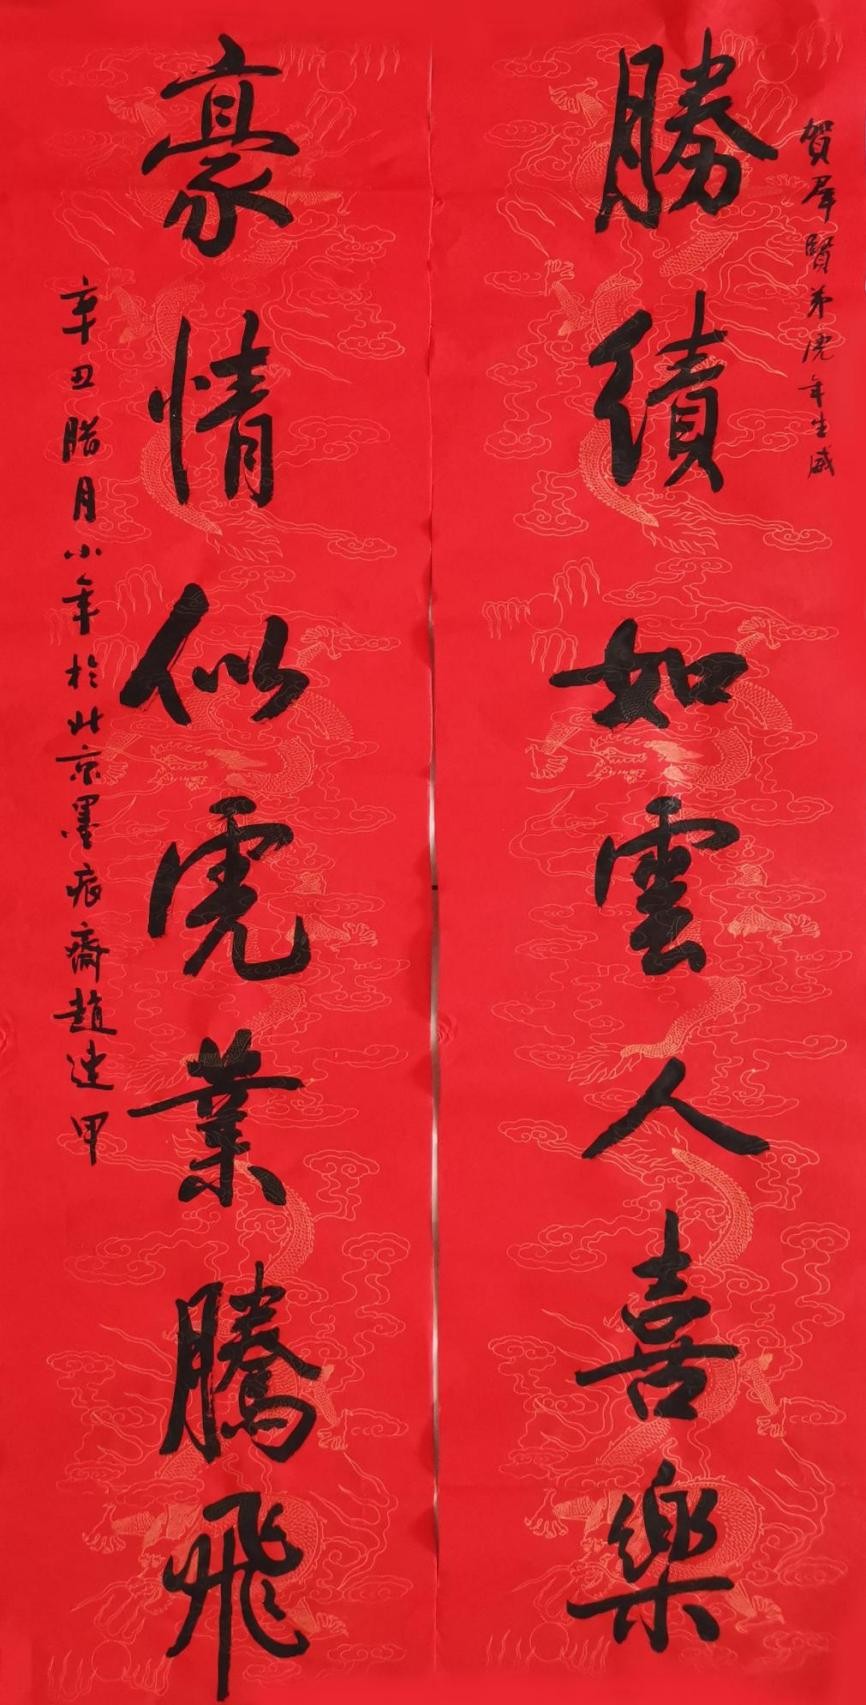 賀羣賢弟虎年生威
勝績如雲人喜樂
豪情似虎業騰飛
辛丑腊月小年於北京墨痕齋趙建甲